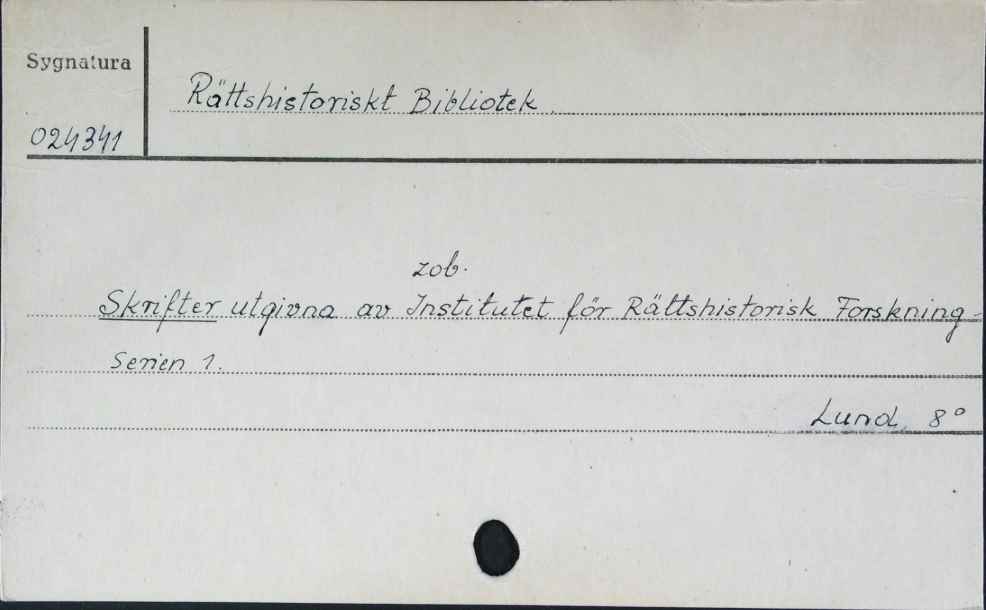 Sygnatura
024341
Rättshistoriskt Bibliotek.
zob.
Skrifter utgivna av Institutet för Rättshistorisk Forskning -
Serien 1.
Lund, 8°